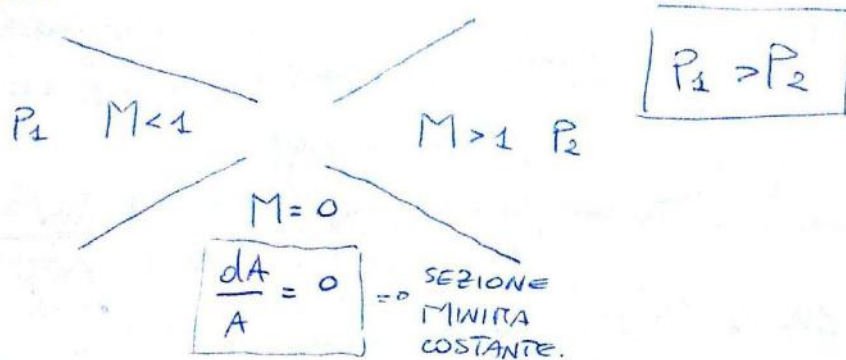 P1 > P2
P1 M<1 M>1 P2
M=0
dA/A = 0 => SEZIONE
MINIMA
COSTANTE.